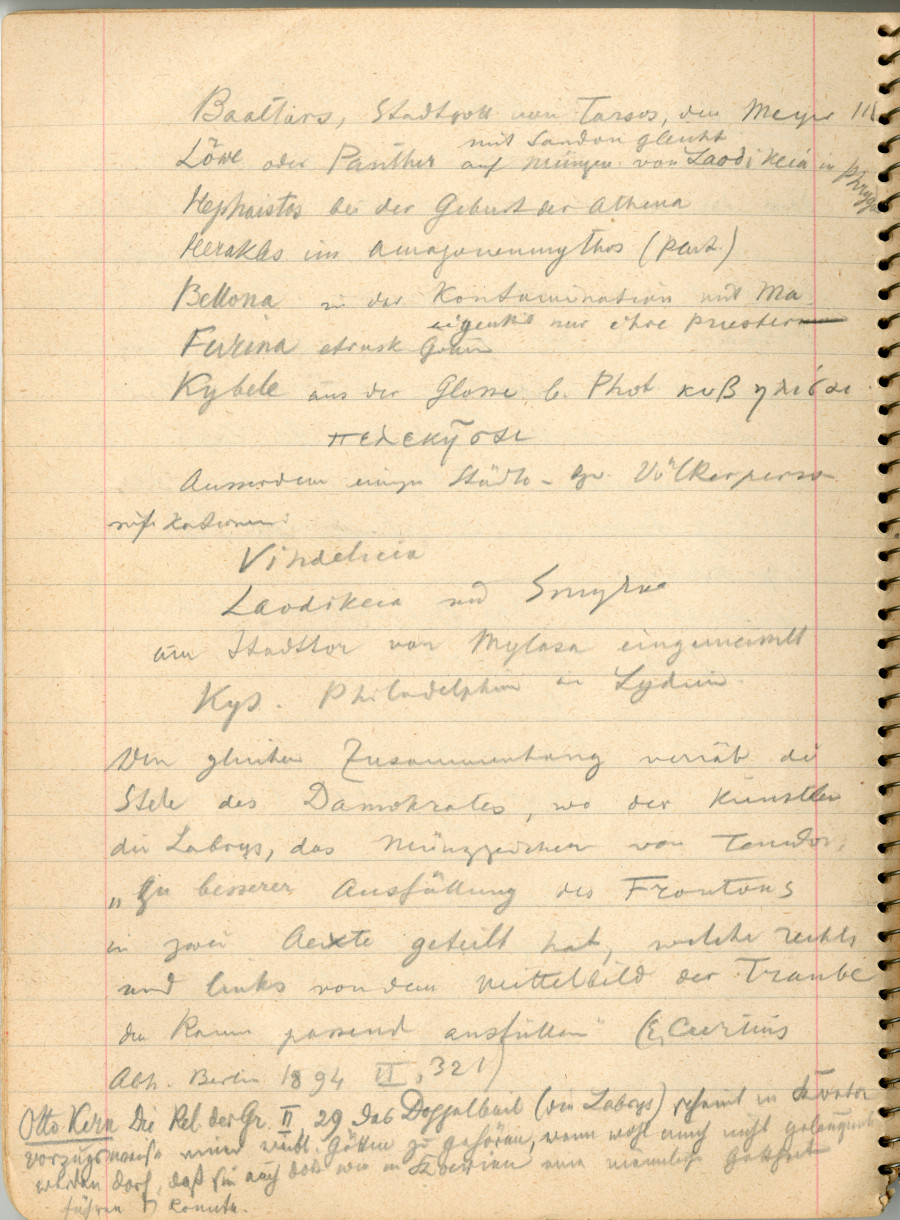 Baaltars, Stadtgott von Tarsos, den Meyer
mit Sandon gleicht
Löwe oder Panther auf Münzen von Laodikeia in Phryg
Hephaistos bei der Geburt der Athena
Herakles im Amazonenmythos (Plut.)
Bellona in der Kontamination mit Ma
eigentl. nur ihre Priester
Furina etrusk Göttin
Kybele aus der Glosse b. Phot κυβηλίσαι
πελεκῆσαι
Ausserdem einige Städte- bzw. Völkerperso
nifikationen:
Vindelicia
Laodikeia und Smyrna
am Stadttor von Mylasa eingemeisselt
Kys. Philadelphia in Lydien
Den gleichen Zusammenhang verrät die
Stele des Damokrates, wo der Künstler
die Labrys, das Münzzeichen von Tenedos,
„Zu besserer Ausfüllung des Frontons
in zwei Aexte geteilt hat, welche rechts
und links von dem Mittelbild der Traube
den Raum passend ausfüllen" (E. Curtius
Abh. Berlin 1894 II, 321)
Otto Kern Die Rel. der Gr. II, 29 Das Doppelbeil (die Labrys) scheint in Kreta
vorzugsweise einer weibl. Göttin zu gehören, wenn wohl auch nicht geleugnet
werden darf, daß sie auch dort wie in eine männliche Gottheit
führen konnte.